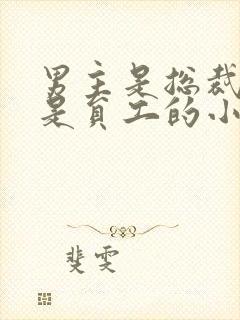 男主是总裁
是员工的小
斐雯